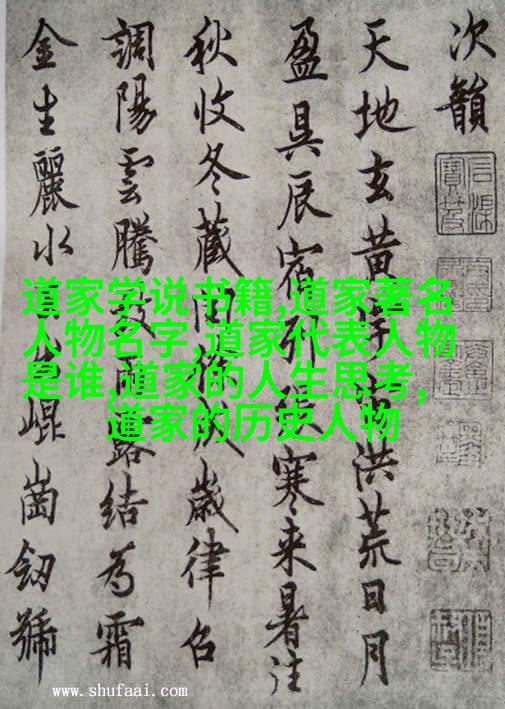 次韻
天地玄黄宇宙洪荒日月
盈昃辰宿列張寒来暑往
秋收冬藏閏餘成歲律吕
調陽雲騰致雨露結為霜
金生麗水玉出崐崗劒號
道家学说书籍,道家著名
人物名字,道家代表人物
是谁,道家的人生思考,
道家的历史人物
www.shufaai.com